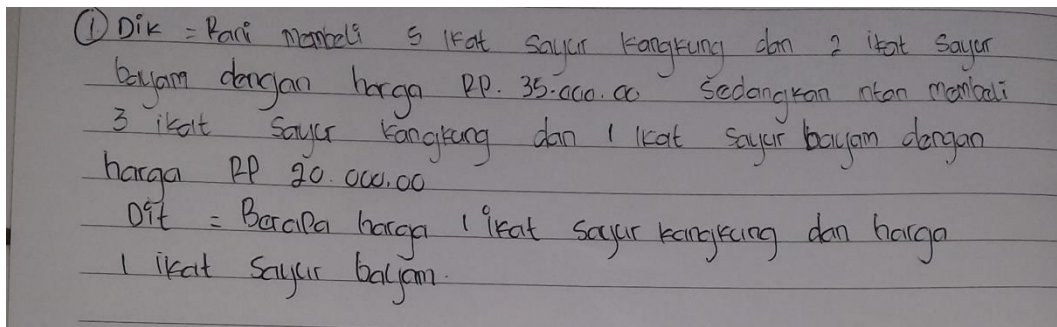 ① Dik = Rani membeli 5 ikat sayur kangkung dan 2 ikat sayur
bayam dengan harga RP. 35.000.00 sedangkan ntan membeli
3 ikat sayur kangkung dan 1 ikat sayur bayam dengan
harga RP 20.000.00
Dit = Berapa harga 1 ikat sayur kangkung dan harga
1 ikat sayur bayam.